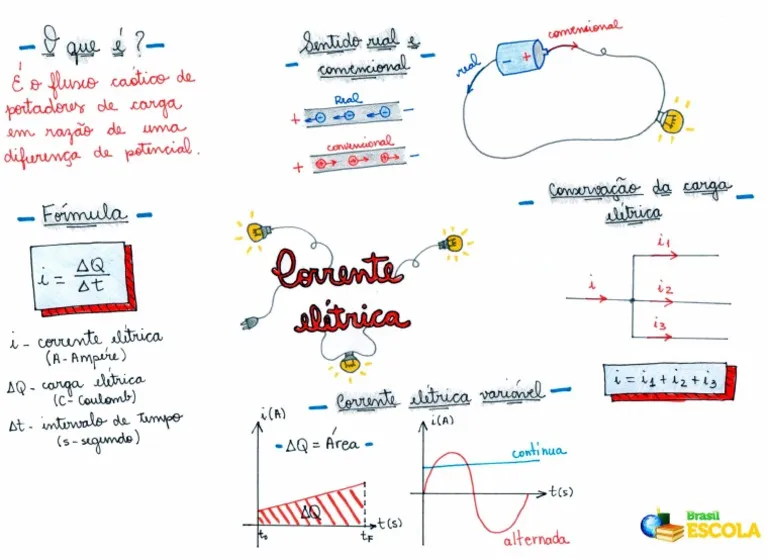 O que é?
É o fluxo caótico de
portadores de carga
em razão de uma
diferença de potencial.
Sentido real e
convencional
Real
+ - - - -
convencional
+ + + + -
real
- +
convencional
Fórmula
i = ΔQ
Δt
i - corrente elétrica
(A - Ampére)
ΔQ - carga elétrica
(C - Coulomb)
Δt - intervalo de tempo
(s - segundo)
Corrente
elétrica
Conservação da carga
elétrica
i
i1
i2
i3
i = i1 + i2 + i3
Corrente elétrica variável
i(A)
- ΔQ = Área -
ΔQ
t0
tF
t(s)
i(A)
contínua
t(s)
alternada
Brasil
ESCOLA